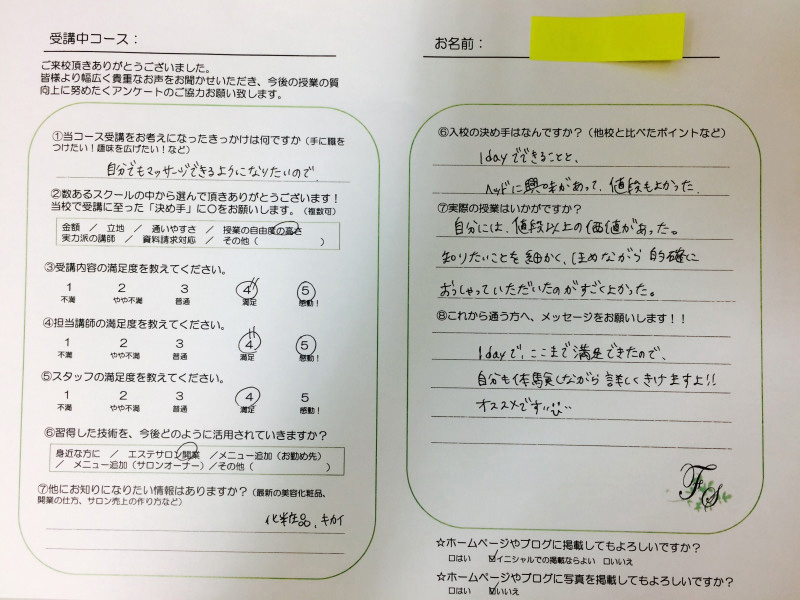 受講中コース：
ご来校頂きありがとうございました。
皆様より幅広く貴重なお声をお聞かせいただき、今後の授業の質
向上に努めたくアンケートのご協力お願い致します。
①当コース受講をお考えになったきっかけは何ですか（手に職を
つけたい！趣味を広げたい！など）
自分でもマッサージできるようになりたいので
②数あるスクールの中から選んで頂きありがとうございます！
当校で受講に至った「決め手」に〇をお願いします。（複数可）
金額 ／ 立地 ／ 通いやすさ ／ 授業の自由度の高さ
実力派の講師 ／ 資料請求対応 ／ その他（ ）
③受講内容の満足度を教えてください。
1 2 3 4 5
不満 やや不満 普通 満足 感動！
④担当講師の満足度を教えてください。
1 2 3 4 5
不満 やや不満 普通 満足 感動！
⑤スタッフの満足度を教えてください。
1 2 3 4 5
不満 やや不満 普通 満足 感動！
⑥習得した技術を、今後どのように活用されていきますか？
身近な方に ／ エステサロン開業 ／メニュー追加（お勤め先）
／ メニュー追加（サロンオーナー）／その他（ ）
⑦他にお知りになりたい情報はありますか？（最新の美容化粧品、
開業の仕方、サロン売上の作り方など）
化粧品、キカイ
お名前：
⑥入校の決め手はなんですか？（他校と比べたポイントなど）
1dayでできること、
ヘッドに興味があって、値段もよかった。
⑦実際の授業はいかがですか？
自分には、値段以上の価値があった。
知りたいことを細かく、ほめながら的確に
おっしゃっていただいたのがすごくよかった。
⑧これから通う方へ、メッセージをお願いします！！
1dayで、ここまで満足できたので、
自分も体験しながら詳しくきけますよ!!
オススメです
FS
☆ホームページやブログに掲載してもよろしいですか？
□はい ☑イニシャルでの掲載ならよい □いいえ
☆ホームページやブログに写真を掲載してもよろしいですか？
□はい ☑いいえ